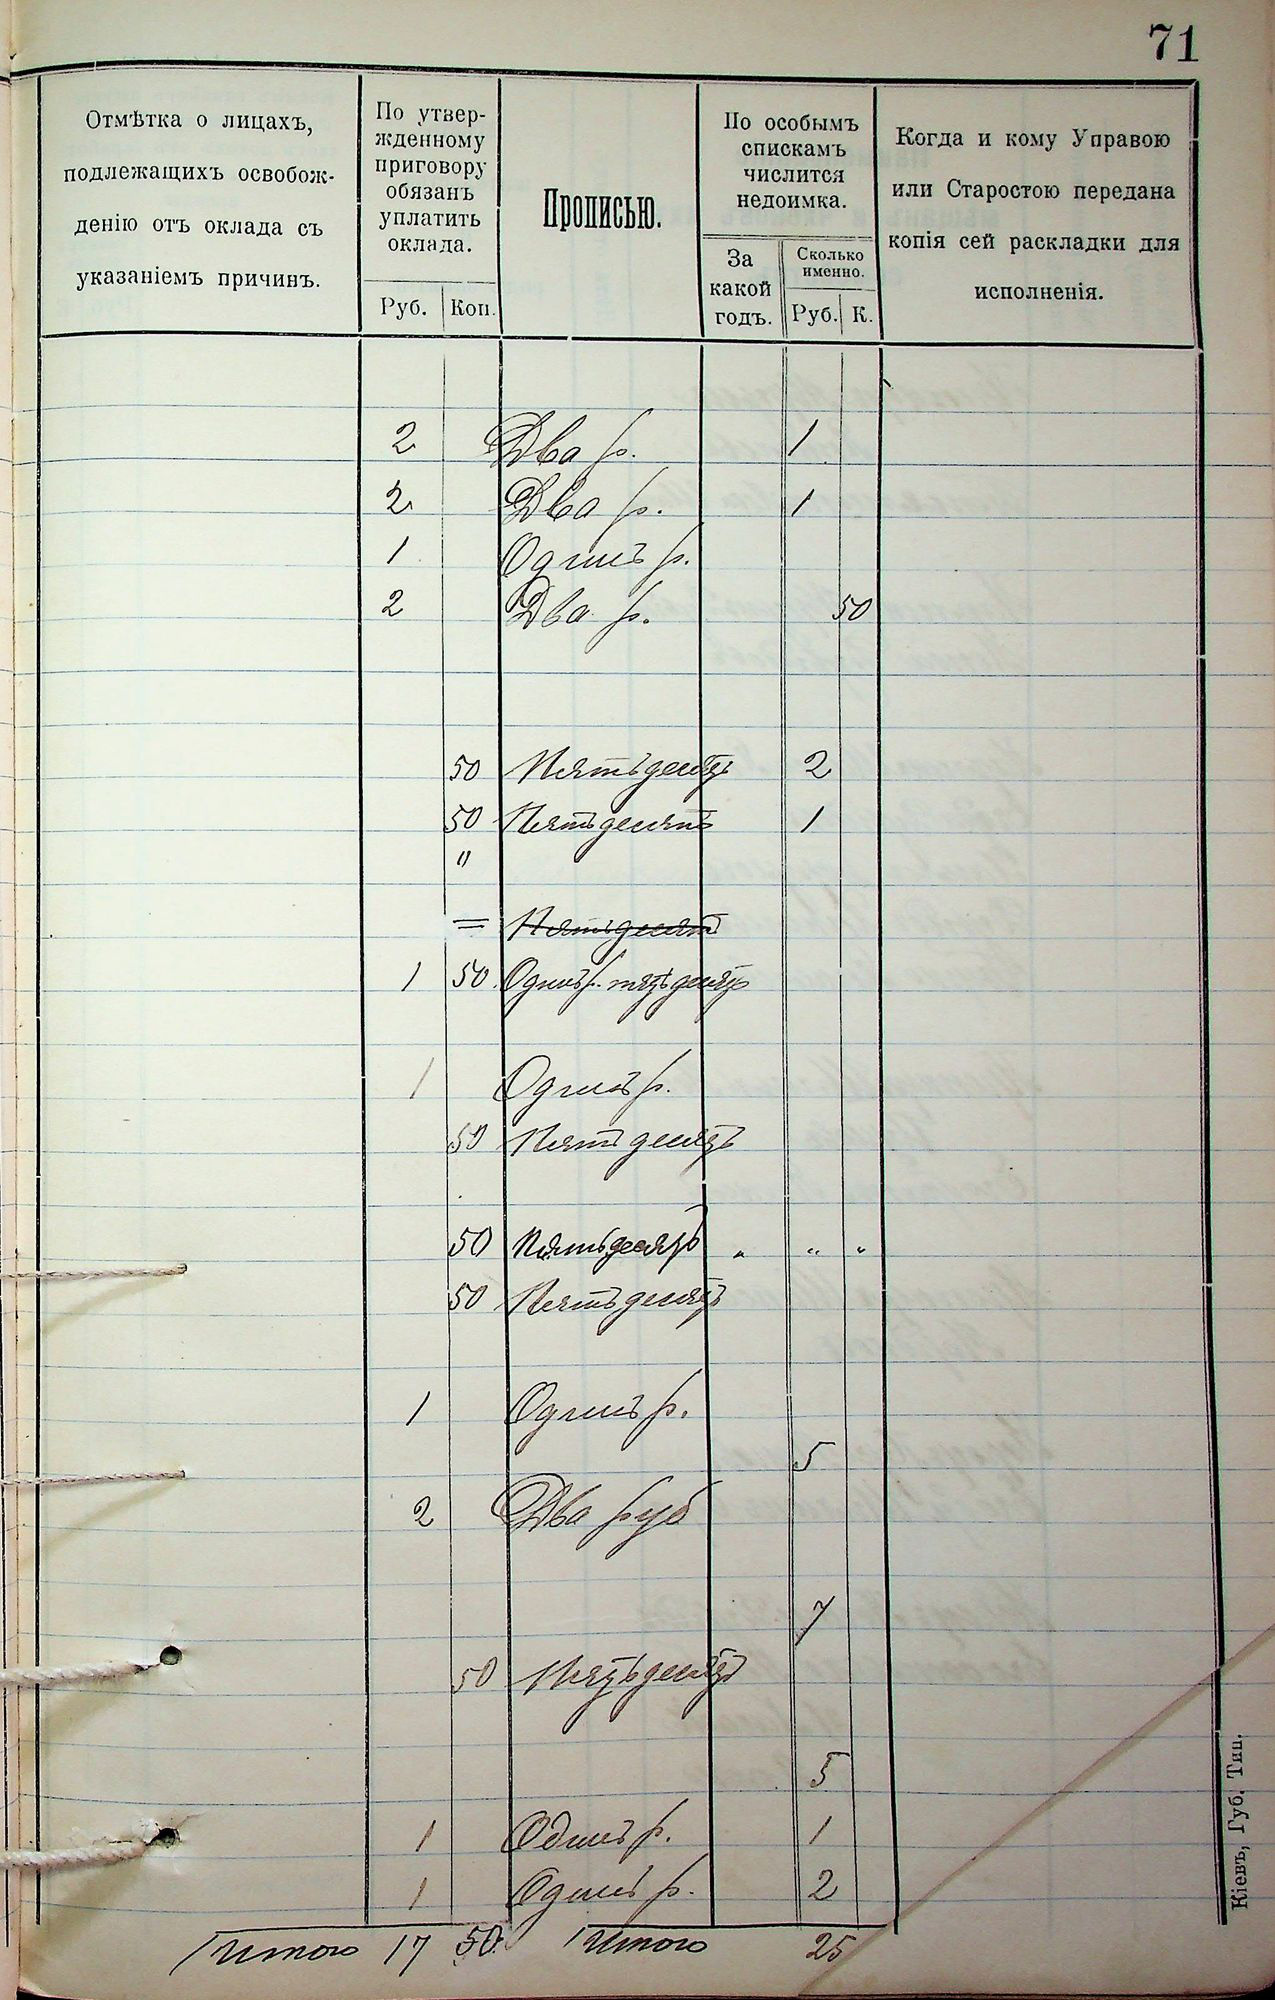 71
Отмѣтка о лицахъ,
подлежащихъ освобож-
денію отъ оклада съ
указаніемъ причинъ.
По утвер-
жденному
приговору
обязанъ
уплатить
оклада.
Руб. Коп.
Прописью.
По особымъ
спискамъ
числится
недоимка.
За
какой
годъ.
Сколько
именно.
Руб. К.
Когда и кому Управою
или Старостою передана
копія сей раскладки для
исполненія.
2 Два р. 1
2 Два р. 1
1 Одинъ р.
2 Два р. 50
50 Пятьдесятъ 2
50 Пятьдесятъ 1
"
= Пятьдесятъ
1 50 Одинъ р. пятьдесятъ
1 Одинъ р.
50 Пятьдесятъ
50 Пятьдесятъ " " "
50 Пятьдесятъ
1 Одинъ р.
5
2 Два руб
7
50 Пятьдесятъ
5
1 Одинъ р. 1
1 Одинъ р. 2
Итого 17 50 Итого 25
Кіевъ, Губ. Тип.